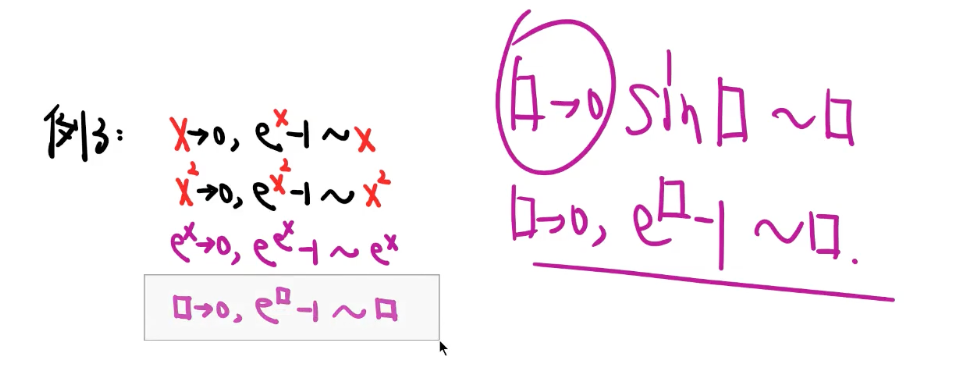 例子: x→0, e^x-1~x
x²→0, e^{x²}-1~x²
e^x→0, e^{e^x}-1~e^x
□→0, e^□-1~□
□→0 sin□~□
□→0, e^□-1~□.